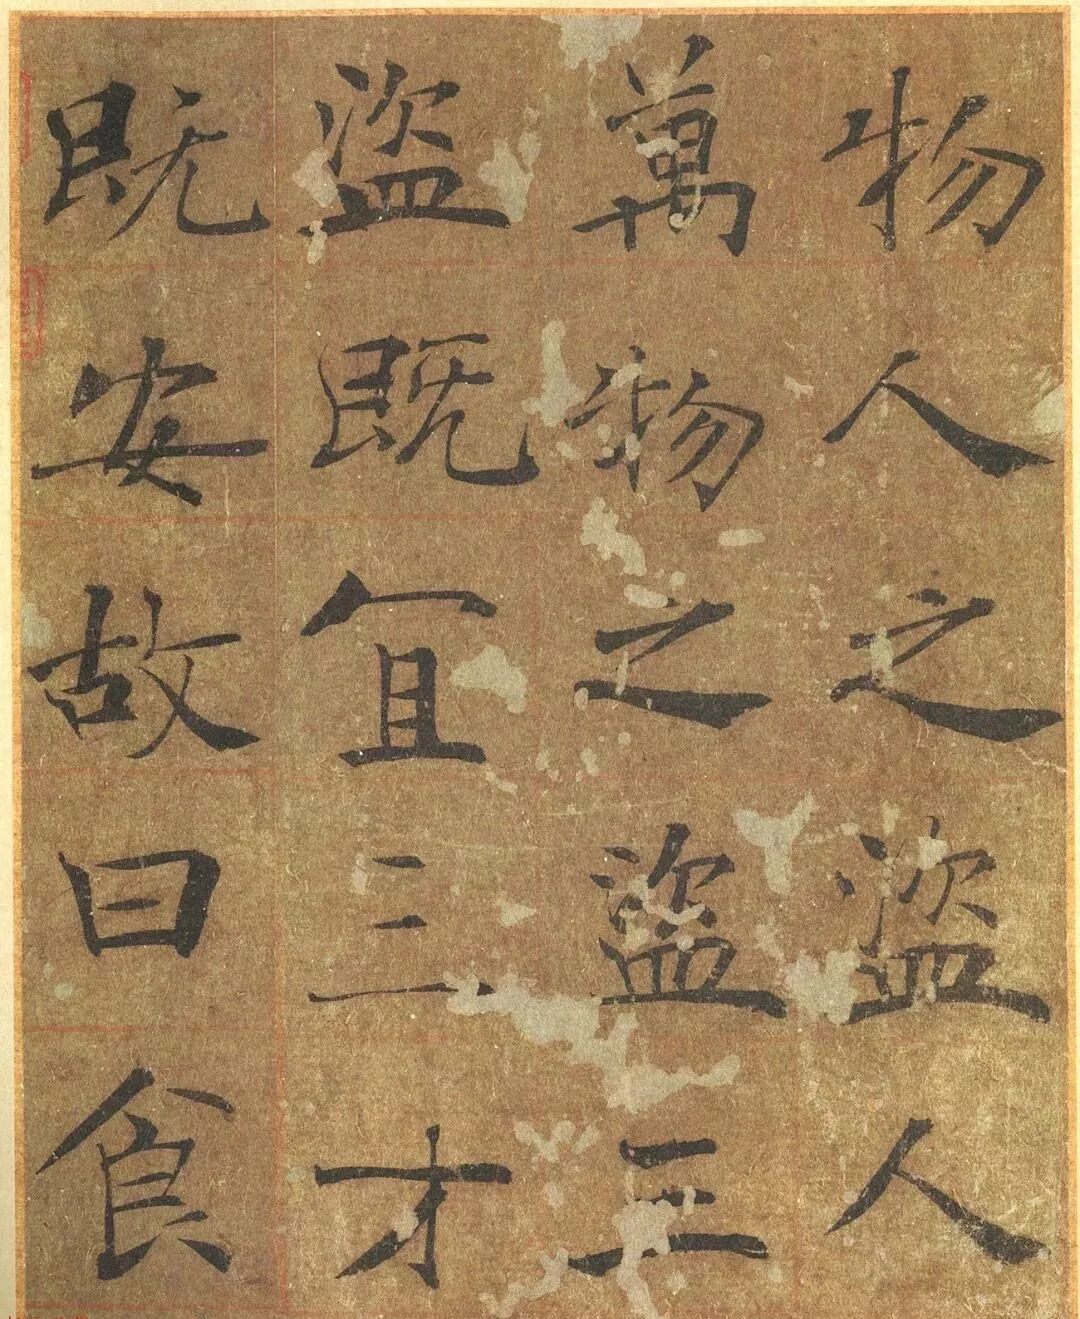 物人之盗人
萬物之盜三
盗既冝三才
既安故曰食